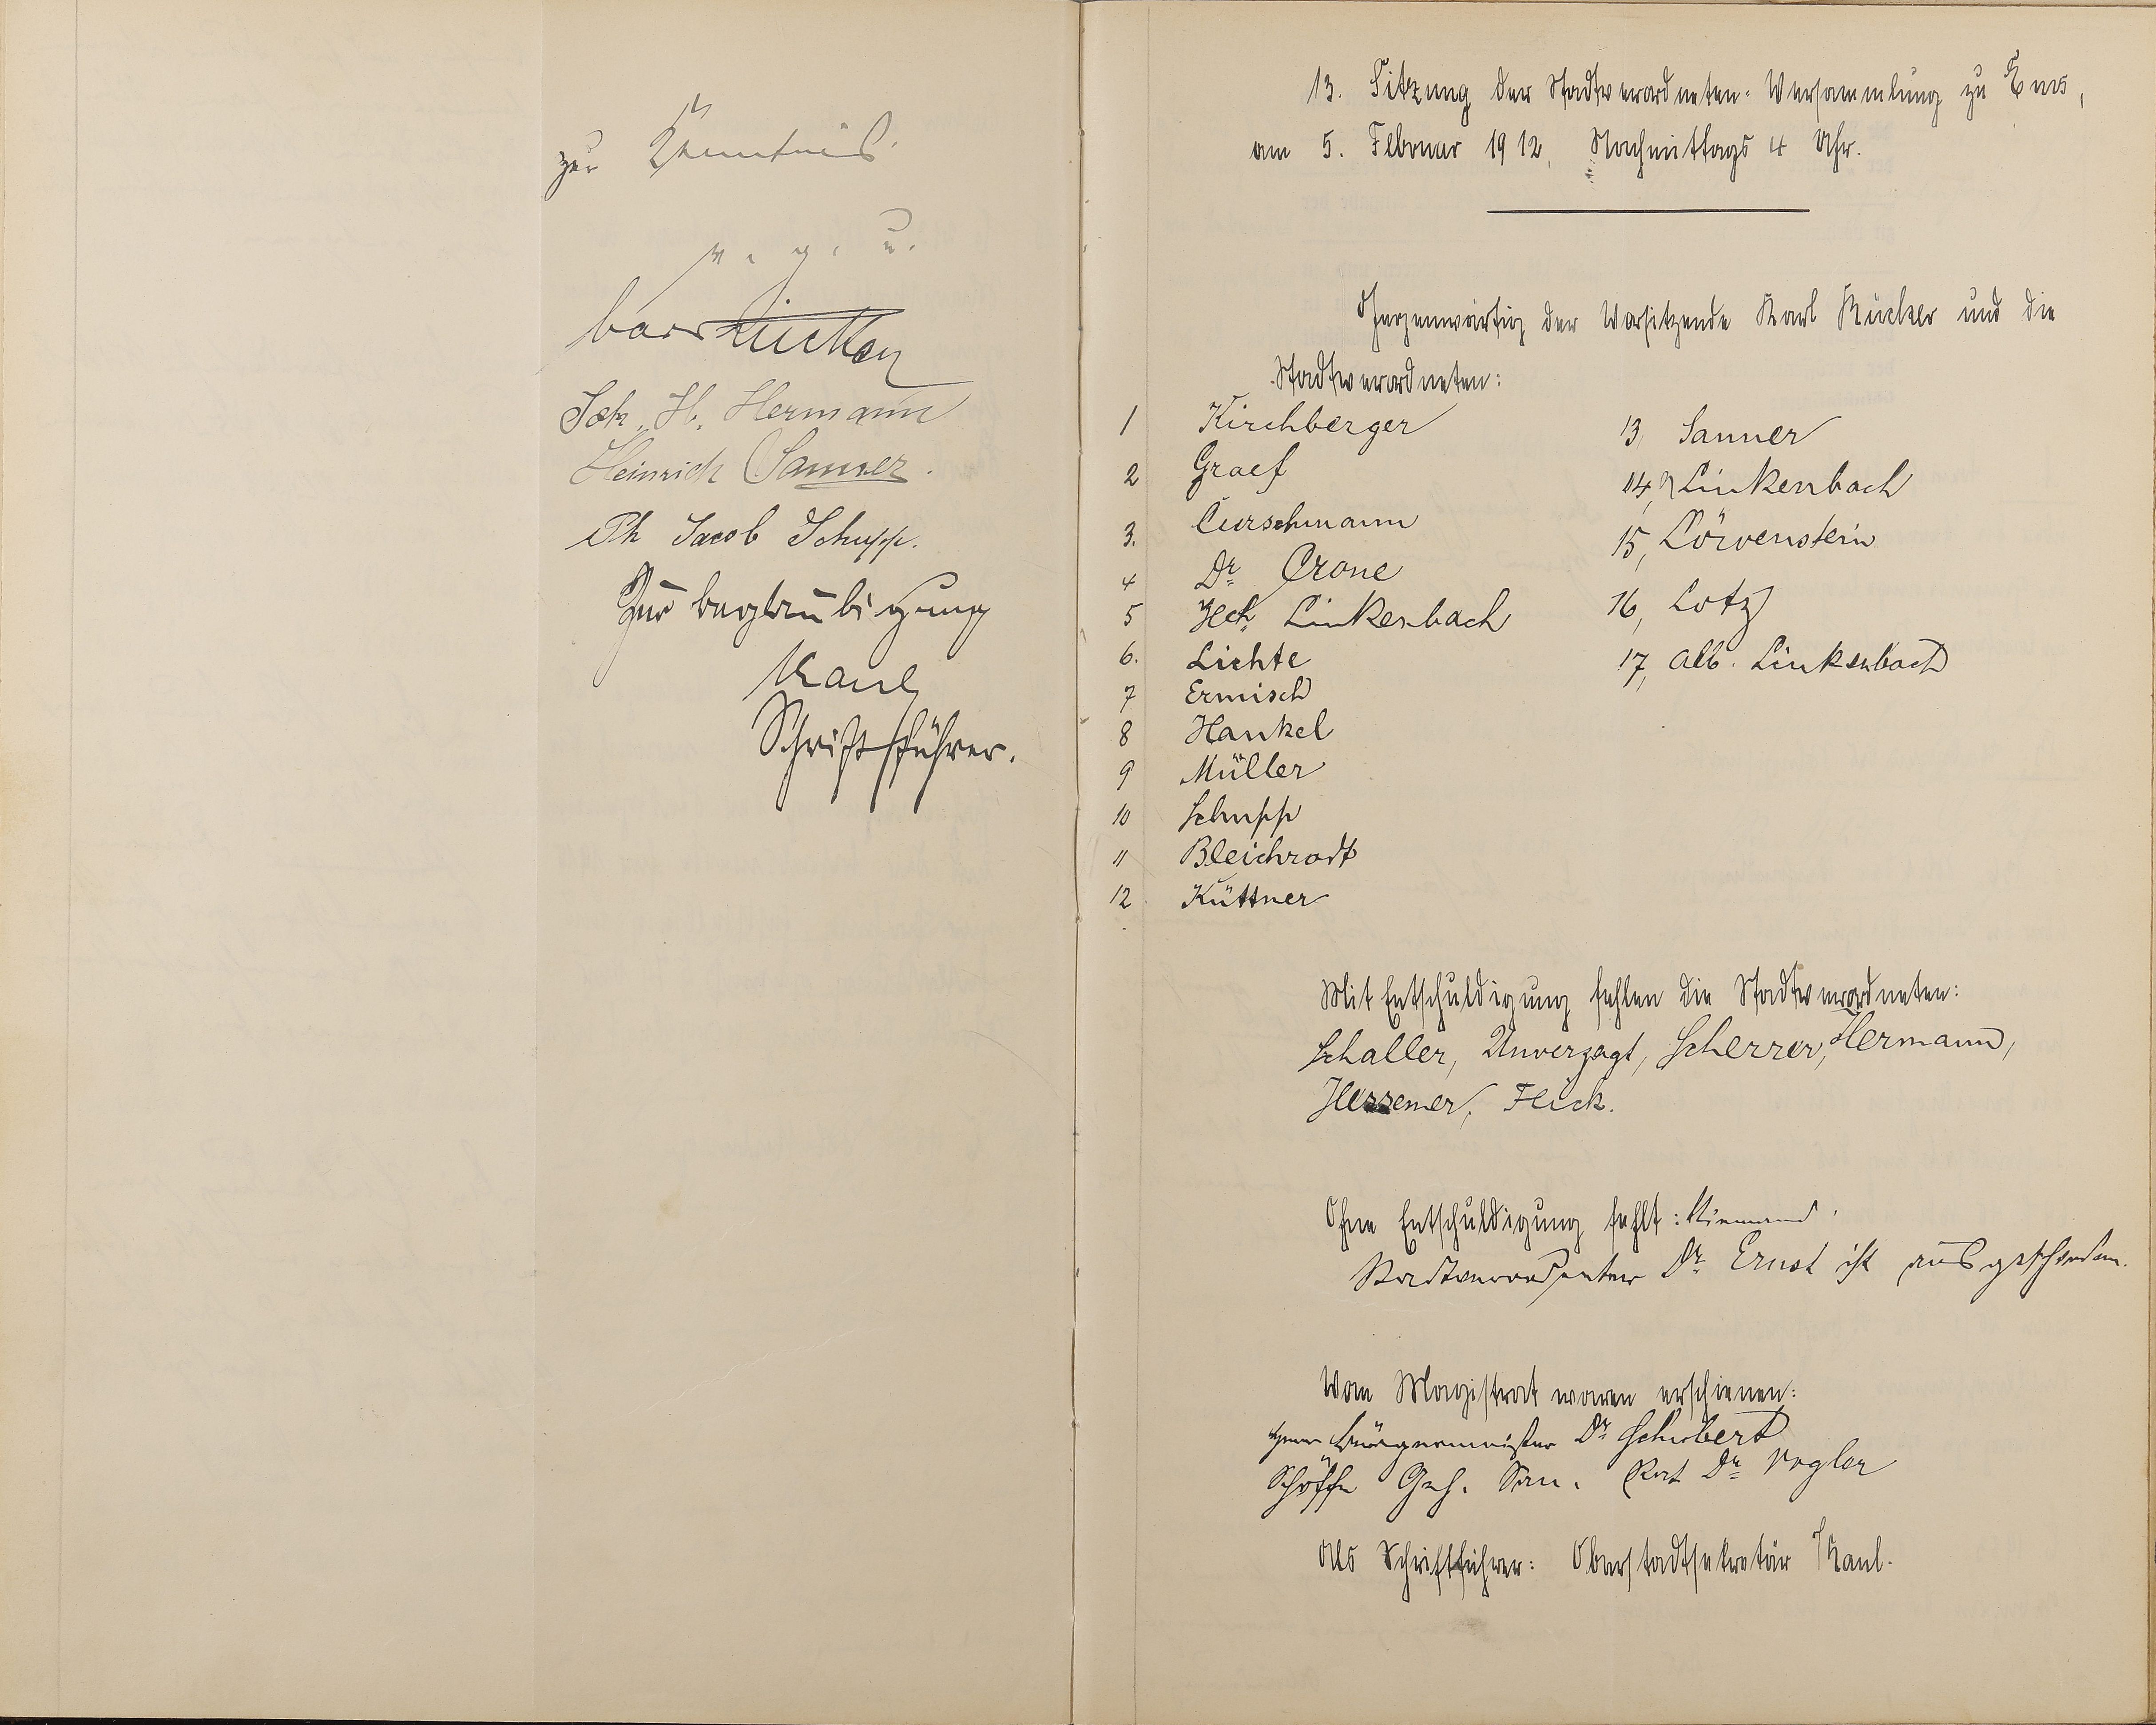 zur Kenntnis.
v. g. u.
Joh. H. Hermann
Heinrich Sanner.
Ph Jacob Schupp.
Zur Beglaubigung
Kaul
Schriftführer.
13. Sitzung der Stadtverordneten-Versammlung zu Ems,
am 5. Februar 1912, Nachmittags 4 Uhr.
Gegenwärtig der Vorsitzende Karl Rücker und die
Stadtverordneten:
1 Kirchberger
2 Graef
3. Curschmann
4 Dr. Crone
5 Hch. Linkenbach
6. Lichte
7 Ermisch
8 Hankel
9 Müller
10 Schupp
11 Bleichrodt
12 Küttner
13, Sanner
14, Linkenbach
15, Löwenstein
16, Lotz
17, Alb. Linkenbach
Mit Entschuldigung fehlen die Stadtverordneten:
Schaller, Unverzagt, Scherrer, Hermann,
Flick.
Ohne Entschuldigung fehlt: Niemand.
Stadtverordneter Dr. Ernst ist ausgeschieden.
Vom Magistrat waren erschienen:
Herr Bürgermeister Dr. Schubert
Schöffe Geh. San. Rat Dr. Vogler
Als Schriftführer: Oberstadtsekretär Kaul.